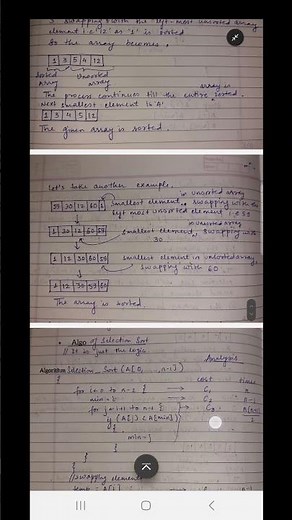 swapping with the left-most unsorted array
element i.e '12' as '1' is sorted
So the array becomes,
1 3 5 4 12
Sorted Unsorted
array array
The process continues till the entire array is sorted.
Next smallest element in 'A'
1 3 4 5 12
The given array is sorted.
Let's take another example.
in unsorted array
30 12 60 1 smallest element, swapping with the
left most unsorted element i.e
in unsorted array
1 30 12 60 smallest element, swapping with
30
1 12 30 60 smallest element in unsorted array
swapping with 60
1 12 30
The array is sorted
• Algo of Selection Sort
// It is just the logic
Analysis
Algorithm Selection_Sort (A[0, ,n-1])
{ cost time
for i ← 0 to n-2 { → C₁ n
min ← i → C₂ n-1
for j ← i+1 to n-1 { → C₃
if (A[j] < A[min])
{
min ← j
}
}
// swapping elements
temp ← A[i]